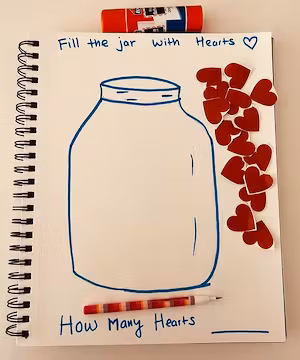 Fill the jar with Hearts ♡
How Many Hearts ______